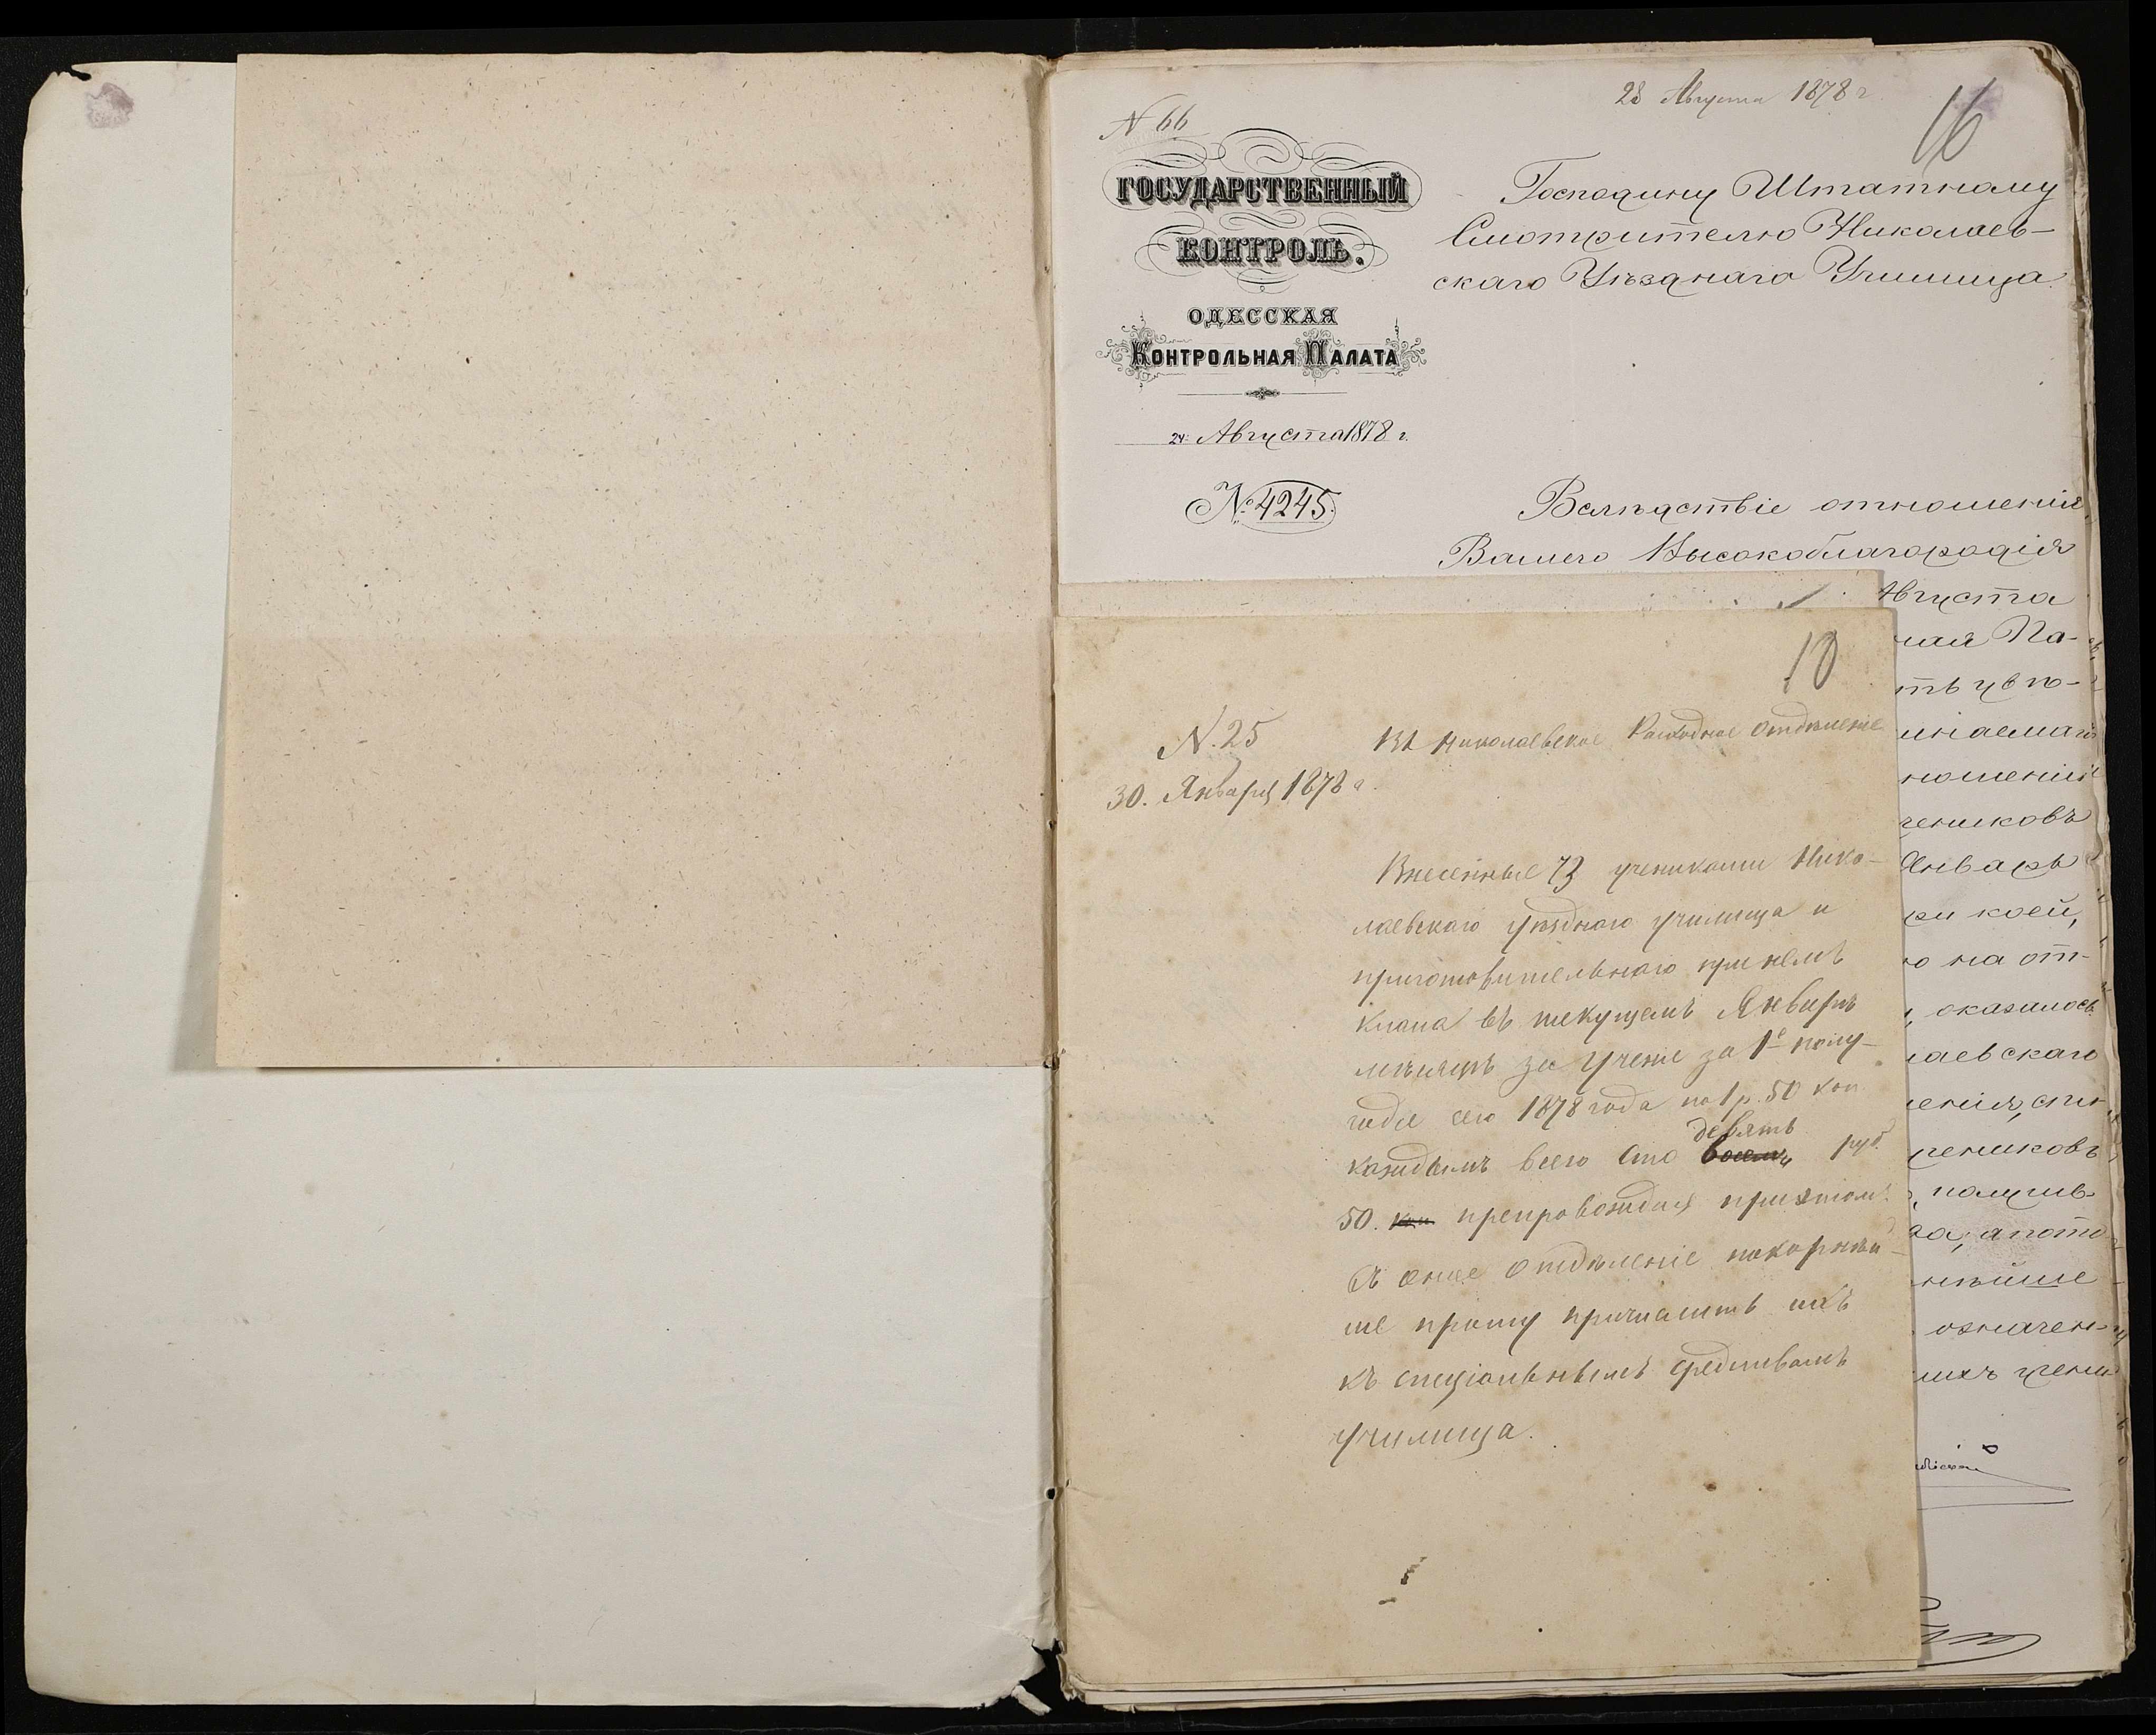 28 Августа 1878 г
N 66
16
ГОСУДАРСТВЕННЫЙ
КОНТРОЛЬ.
ОДЕССКАЯ
КОНТРОЛЬНАЯ ПАЛАТА
24 Августа 1878 г.
№ 4245.
Господину Штатному
Смотрителю Николаев-
скаго Уѣзднаго Училища.
Вслѣдствіе отношенія
Вашего Высокоблагородія
Августа
ная Па-
ть увѣ-
ношенія
чениковъ
Январь
ри коей,
о на от-
, оказалось
лаевскаго
чениковъ
, а пото
нѣйше
означен-
учени
10
N. 25
30. Января 1878 г.
Въ Николаевское Расходное Отдѣленіе
Внесенные 73 учениками Нико-
лаевскаго уѣзднаго училища и
приготовительнаго при немъ
класса въ текущемъ Январѣ
мѣсяцѣ за ученіе за 1е полу-
годіе сего 1878 года по 1 р. 50 коп
каждымъ всего сто восемь девять руб.
50. коп. препровождая при этомъ
въ оное Отдѣленіе покорнѣй-
ше прошу причислить ихъ
къ спеціальнымъ средствамъ
училища.